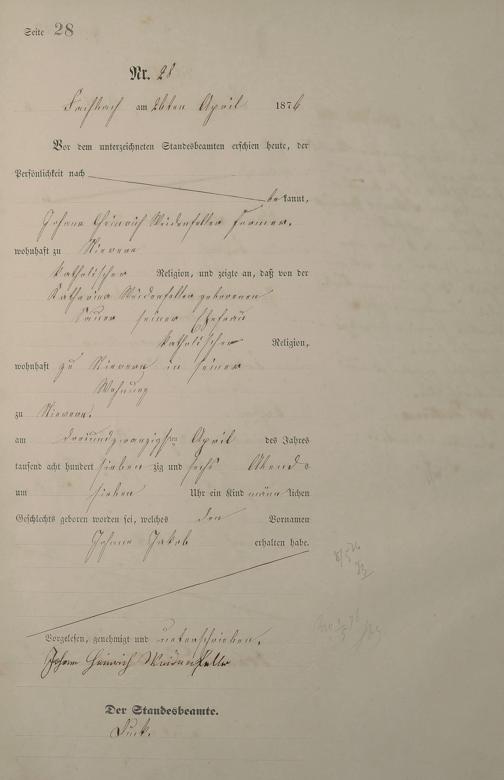 Seite 28
Nr. 28
Fachbach am 26ten April 1876
Vor dem unterzeichneten Standesbeamten erschien heute, der
Persönlichkeit nach
bekannt,
Johann Heinrich Weidenfeller Former,
wohnhaft zu Nievern
katholischer Religion, und zeigte an, daß von der
Katharina Weidenfeller geborenen
Sauer seiner Ehefrau
katholischer Religion,
wohnhaft zu Nievern in seiner
Wohnung
zu Nievern,
am dreiundzwanzigsten April des Jahres
tausend acht hundert siebenzig und sechs Abends
um sieben Uhr ein Kind männlichen
Geschlechts geboren worden sei, welches den Vornamen
Johann Jakob erhalten habe.
Vorgelesen, genehmigt und unterschrieben.
Johann Heinrich Weidenfeller
Der Standesbeamte.